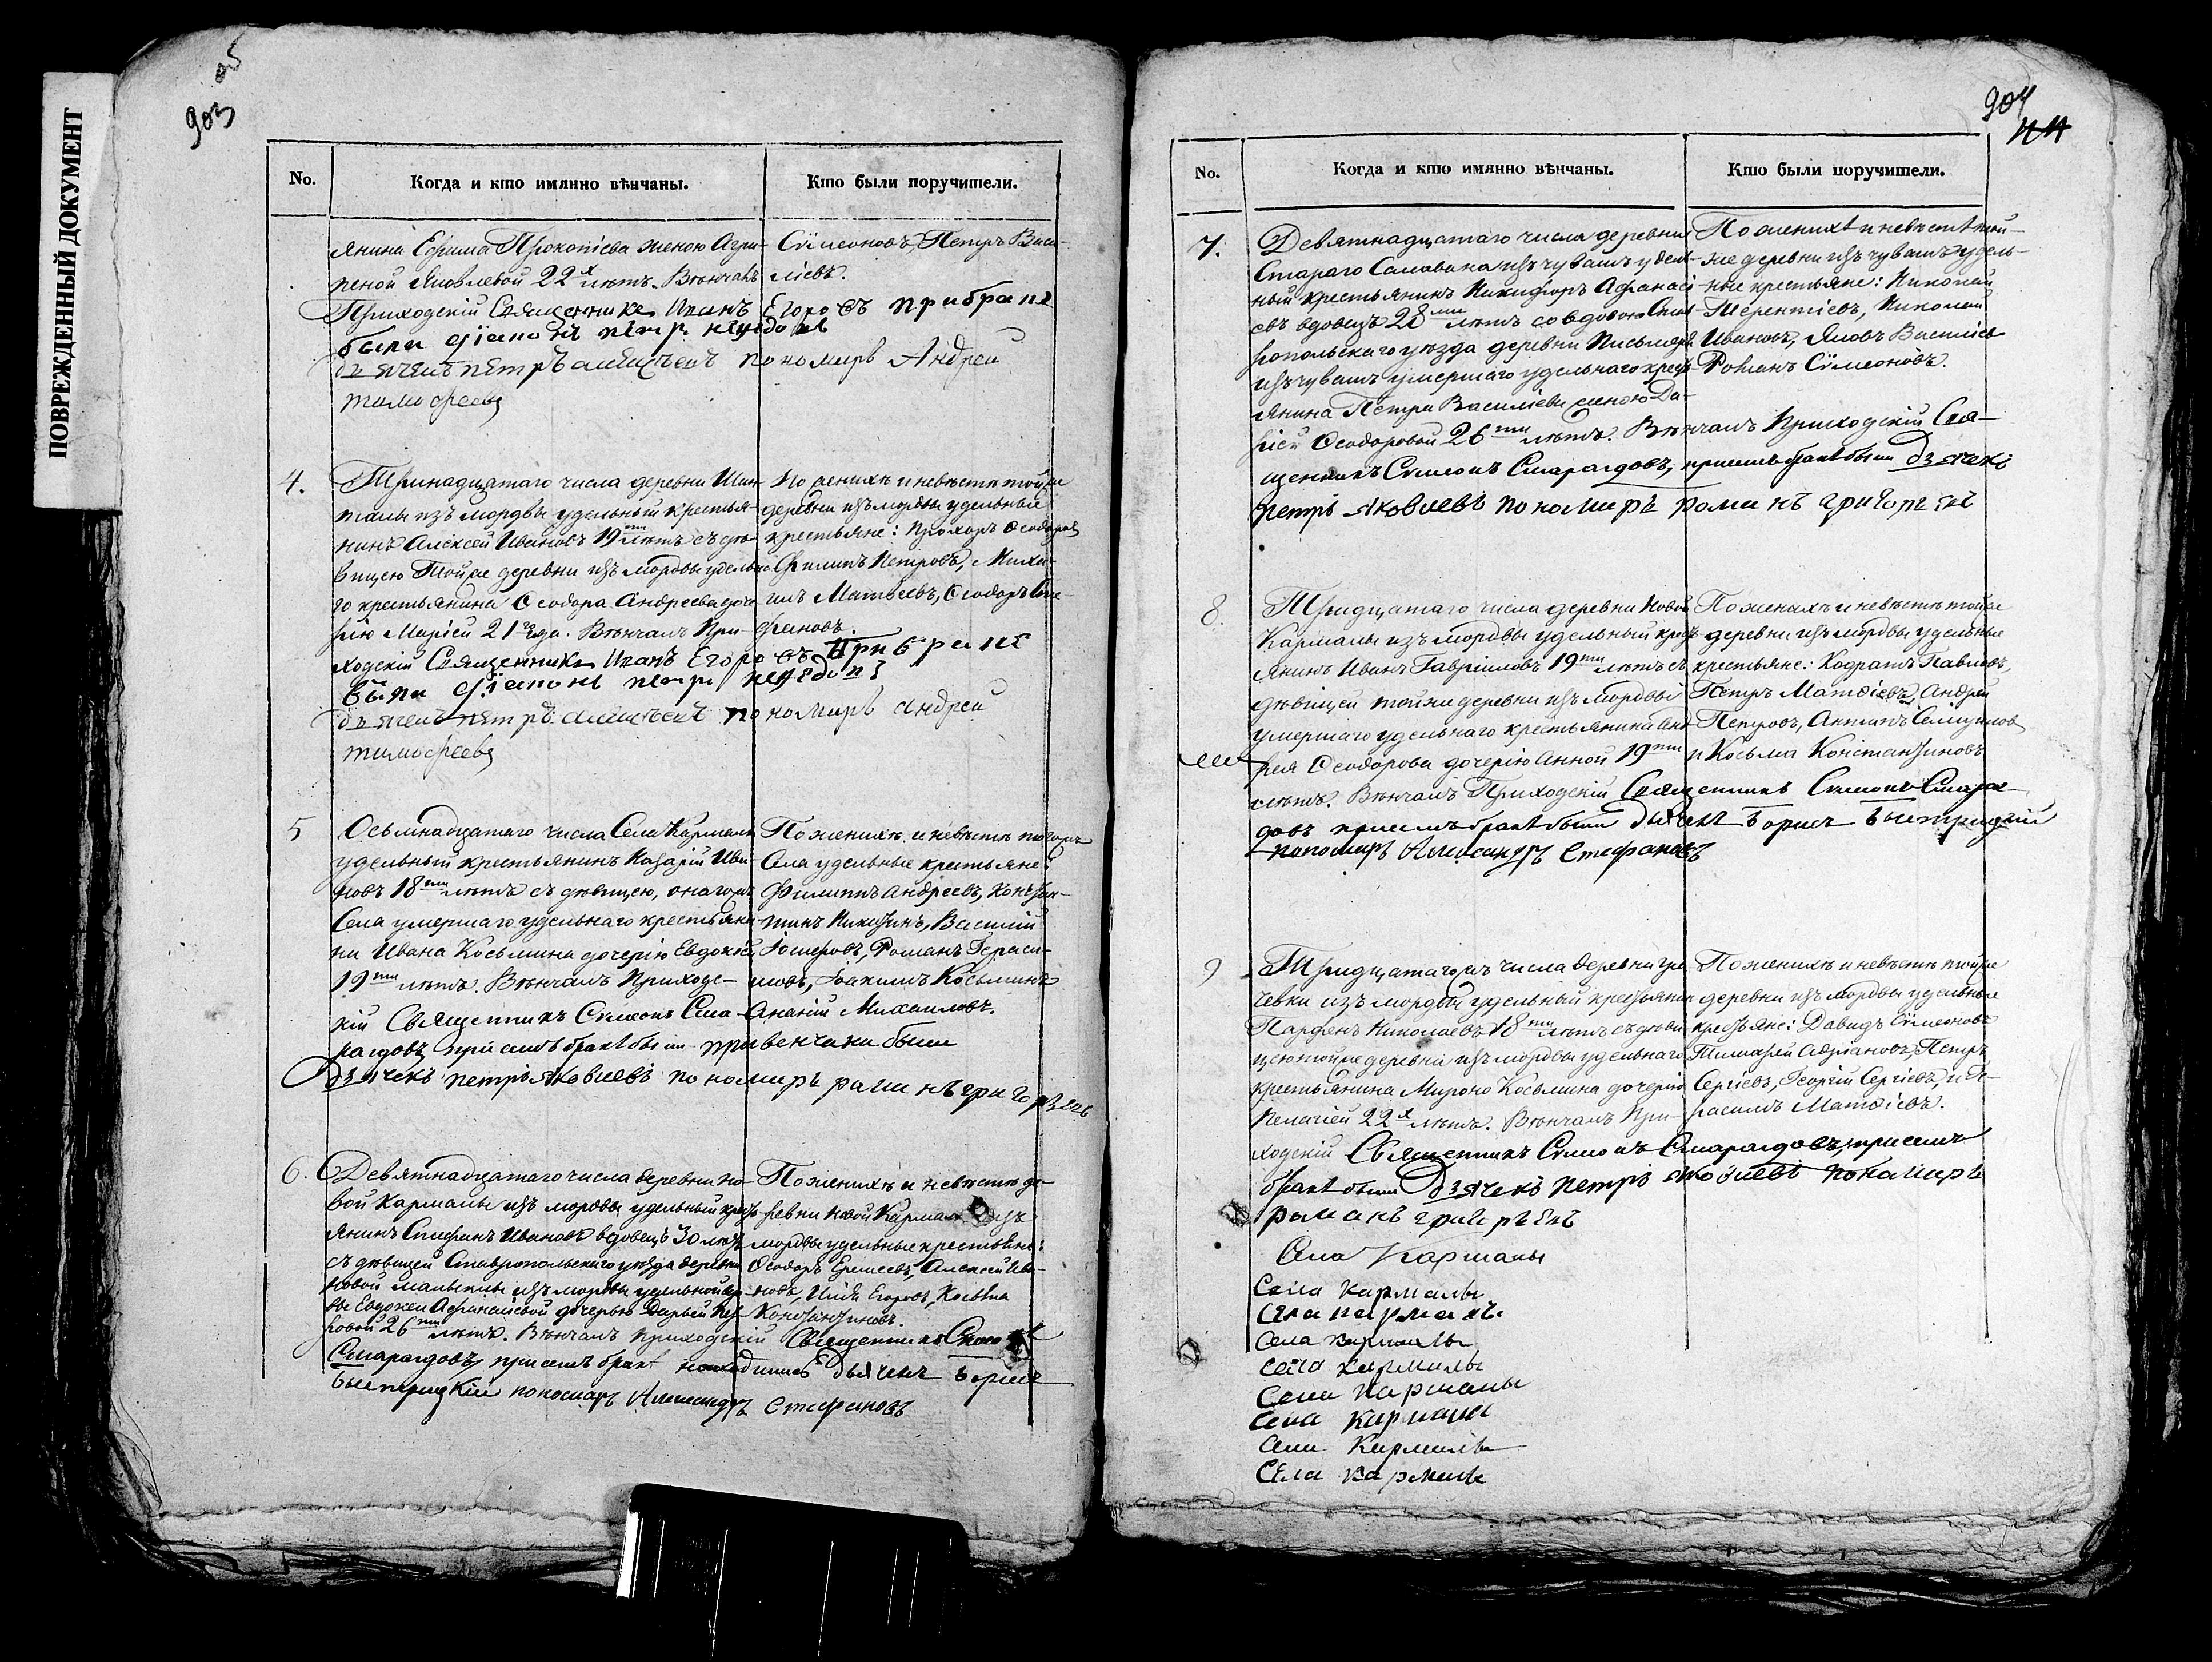 ПОВРЕЖДЕННЫЙ ДОКУМЕНТ
903
No.
Когда и кто имянно вѣнчаны.
Кто были поручители.
янина Ефима Прокопіева женою Агри-
пеной Яковлевой 22х лѣтъ. Вѣнчалъ
Приходскій Священникъ Иванъ Егоровъ при бракѣ
были діаконъ петръ
дьячекъ петръ пономарь Андрей
тимофеевъ
Сѵмеоновъ, Петръ Васи-
ліевъ.
4.
Тринадцатаго числа деревни Шин-
талы изъ мордвы удельный крестья-
нинъ Алексей Ивановъ 19ти лѣтъ съ дѣ-
вицею Той же деревни изъ мордвы удельна-
го крестьянина Ѳеодора Андреева доче-
рію Маріей 21 года. Вѣнчалъ При-
ходскій Священникъ Иванъ Егоровъ При бракѣ
были діаконъ петръ
дьячекъ петръ пономарь Андрей
тимофеевъ
По женихѣ и невѣстѣ той же
деревни изъ мордвы удельные
крестьяне: Прохоръ Ѳеодоровъ
Филипъ Петровъ, Миха-
илъ Матвеевъ, Ѳеодоръ Сте-
фановъ.
5
Осьмнадцатаго числа Села Кармалы
удельный крестьянинъ Назарій Ива-
новъ 18ти лѣтъ съ дѣвицею, онаго жъ
Села умершаго удельнаго крестьяни-
на Ивана Косьмина дочерію Евдокіей
19ти лѣтъ. Вѣнчалъ Приходс-
кій Священникъ Сѵмеонъ Сма-
рагдовъ при семъ бракѣ были при венчани были
дзячекъ петръ яковлевъ пономарь романъ григорьевъ
По женихѣ и невѣстѣ тогожъ
Села удельные крестьяне:
Филиппъ Андреевъ, Констан-
тинъ Никитинъ, Василій
Іосифовъ, Романъ Гераси-
мовъ, Іоакимъ Косьминъ
Ананій Михаиловъ.
6.
Девятнадцатаго числа деревни Но-
вой Кармалы изъ мордвы удельный крест-
янинъ Стефанъ Ивановъ вдовецъ 30 лѣтъ
съ дѣвицей Ставропольскаго уѣзда деревни
Новой Малыклы изъ мордвы удельной вдо-
вы Евдокеи Афанасіевой дочерью Дарьей Пет-
ровой 26ти лѣтъ. Вѣнчалъ Приходскій Священникъ Сѵмеонъ
Смарагдовъ, при семъ бракѣ находились Дьячекъ Борисъ
Быстрицкій пономарь Александръ Стефановъ
По женихѣ и невѣстѣ де-
ревни Новой Кармалы изъ
мордвы удельные крестьяне:
Ѳеодоръ Ермеевъ, Алексей Ива-
новъ, Илія Егоровъ, Косьма
Константиновъ.
904
No.
Когда и кто имянно вѣнчаны.
Кто были поручители.
7.
Девятнадцатаго числа деревни
Стараго Самавана изъ чувашъ удель-
ный крестьянинъ Никифоръ Афанасі-
евъ вдовецъ 28ми лѣтъ со вдовою Став-
ропольскаго уѣзда деревни Письмяръ
изъ чувашъ умершаго удельнаго крест-
янина Петра Василіева женою Да-
ріей Ѳеодоровой 26ти лѣтъ. Вѣнчалъ Приходскій Свя-
щенникъ Сѵмеонъ Смарагдовъ, при семъ бракѣ были дзячекъ
петръ яковлевъ пономарь романъ григорьевъ
По женихѣ и невѣстѣ той-
же деревни изъ чувашъ удель-
ные крестьяне: Николай
Терентіевъ, Николай
Ивановъ, Яковъ Василіевъ
Романъ Сѵмеоновъ.
8.
Тридцатаго числа деревни Новой
Кармалы изъ мордвы удельный крест-
янинъ Иванъ Гавріиловъ 19ти лѣтъ съ
дѣвицей той же деревни изъ мордвы
умершаго удельнаго крестьянина Анд-
рея Ѳеодорова дочерію Анной 19ти
лѣтъ. Вѣнчалъ Приходскій Священникъ Сѵмеонъ Смараг-
довъ при семъ бракѣ были Дьячекъ Борисъ Быстрицкій
пономарь Александръ Стефановъ
По женихѣ и невѣстѣ той же
деревни изъ мордвы удельные
крестьяне: Кодратъ Павловъ,
Петръ Матѳіевъ, Андрей
Петровъ, Антипъ
и Косьма Константиновъ
9
Тридцатаго жъ числа деревни Гра-
чевки изъ мордвы удельный крестьянинъ
Парфенъ Николаевъ 18ти лѣтъ съ дѣви-
цею той же деревни изъ мордвы удельнаго
крестьянина Мирона Косьмина дочерію
Пелагіей 22х лѣтъ. Вѣнчалъ При-
ходскій Священникъ Сѵмеонъ Смарагдовъ, при семъ
бракѣ были Дзячекъ петръ яковлевъ пономарь
романъ григорьевъ
По женихѣ и невѣстѣ той же
деревни изъ мордвы удельные
крестьяне: Давидъ Сѵмеоновъ
Тимофей Адриановъ, Петръ
Сергіевъ, Георгій Сергіевъ, и Ге-
расимъ Матѳіевъ.
Села Кармалы
Села Кармалы
Села Кармалъ
Села Кармалы
Села Кармалы
Села Кармалы
Села Кармалы
Села Кармалы
Села Кармалы